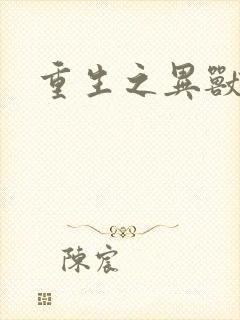 重生之異獸
陳宸